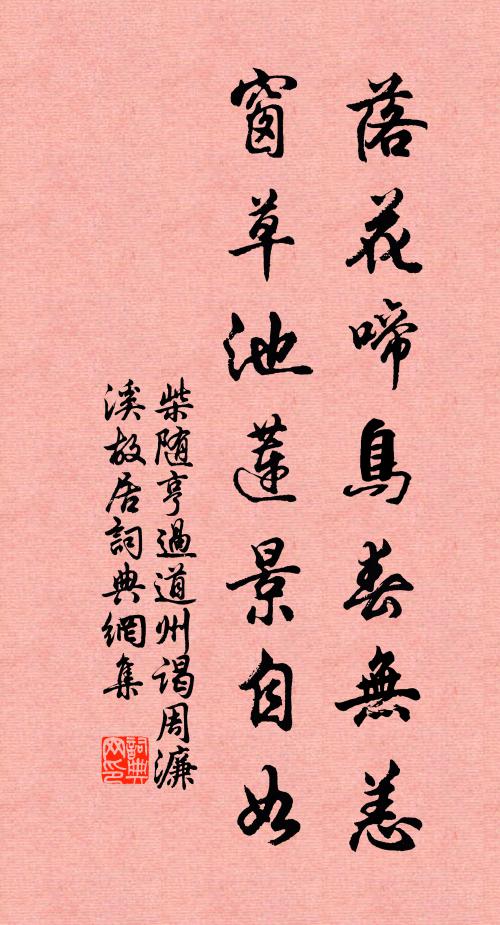 落花啼鳥春無恙
窗草池蓮景自如
柴随亨過道州谒周濂
溪故居詞典網集
詞典网印